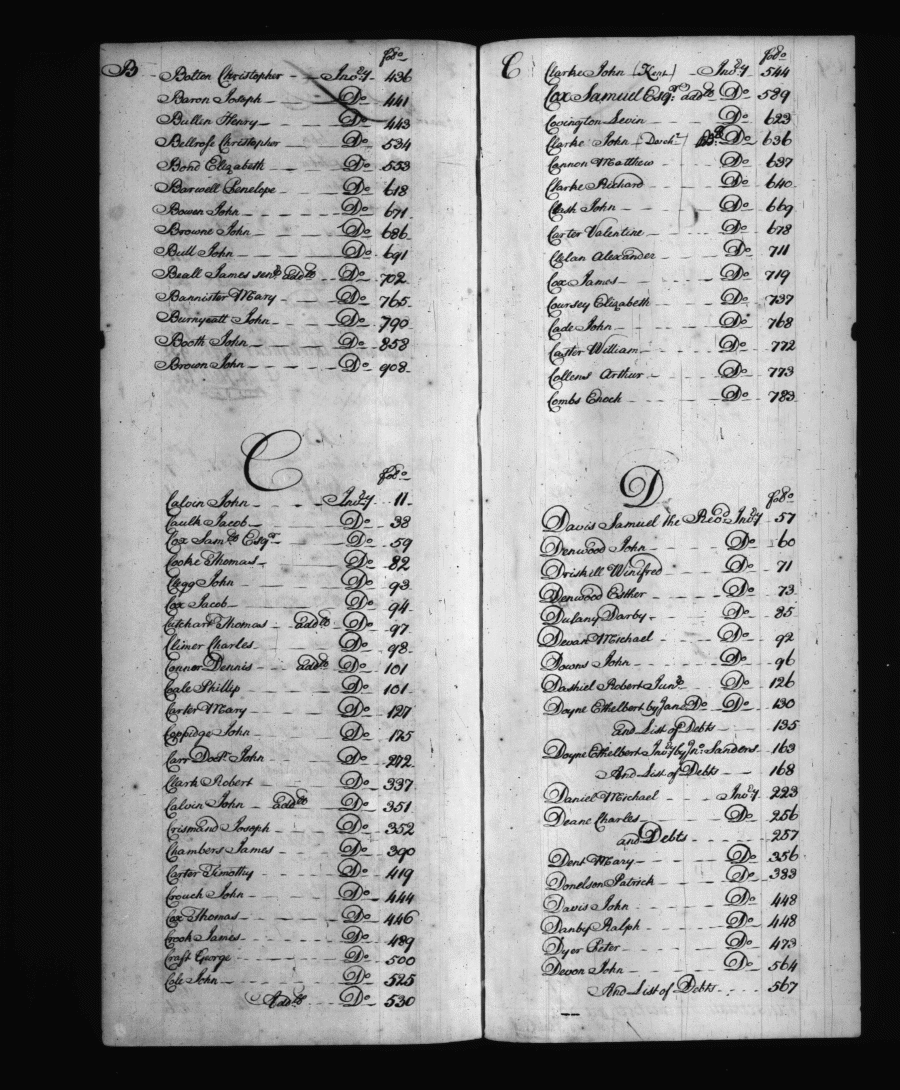 B
folo
Botten Christopher Invty 436
Baron Joseph Do 441
Bullen Henry Do 443
Bellrose Christopher Do 534
Bond Elizabeth Do 553
Barwell Penelope Do 618
Bowen John Do 671
Browne John Do 686
Bull John Do 691
Beall James senr addl Do 702
Bannister Mary Do 765
Burnyeatt John Do 790
Booth John Do 858
Brown John Do 908
C
folo
Calvin John Invty 11
Caulk Jacob Do 38
Cox Saml Esqr Do 59
Cooke Thomas Do 82
Clegg John Do 93
Cox Jacob Do 94
Thomas addl Do 97
Climer Charles Do 98
Connor Dennis addl Do 101
Cale Phillip Do 101
Carter Mary Do 127
Coppidge John Do 175
Carr Doctr John Do 272
Clark Robert Do 337
Calvin John addl Do 351
Crismand Joseph Do 352
Chambers James Do 390
Carter Timothy Do 419
Crouch John Do 444
Cox Thomas Do 446
Crook James Do 489
Craft George Do 500
Cole John Do 525
Addl Do 530
C
folo
Clarke John (Kent) Invty 544
Cox Samuel Esqr addl Do 589
Covington Levin Do 623
Clarke John (Dorchr) Do 636
Cannon Matthew Do 637
Clarke Richard Do 640
Clash John Do 669
Carter Valentine Do 678
Clelan Alexander Do 711
Cox James Do 719
Coursey Elizabeth Do 737
Cade John Do 768
Carter William Do 772
Collens Arthur Do 773
Combs Enoch Do 783
D
folo
Davis Samuel the Revd Invty 57
Denwood John Do 60
Driskill Winifred Do 71
Denwood Esther Do 73
Dulany Darby 85
Devan Michael Do 92
Downs John Do 96
Dashiel Robert Junr Do 126
Doyne Ethelbert by Jane Do Do 130
and List of Debts 135
Doyne Ethelbert Invty by Jno Sanders 163
And List of Debts 168
Daniel Michael Invty 223
Deane Charles Do 256
and Debts 257
Dent Mary Do 356
Donelson Patrick Do 383
Davis John Do 448
Danby Ralph Do 448
Dyer Peter Do 473
Devon John Do 564
And List of Debts 567